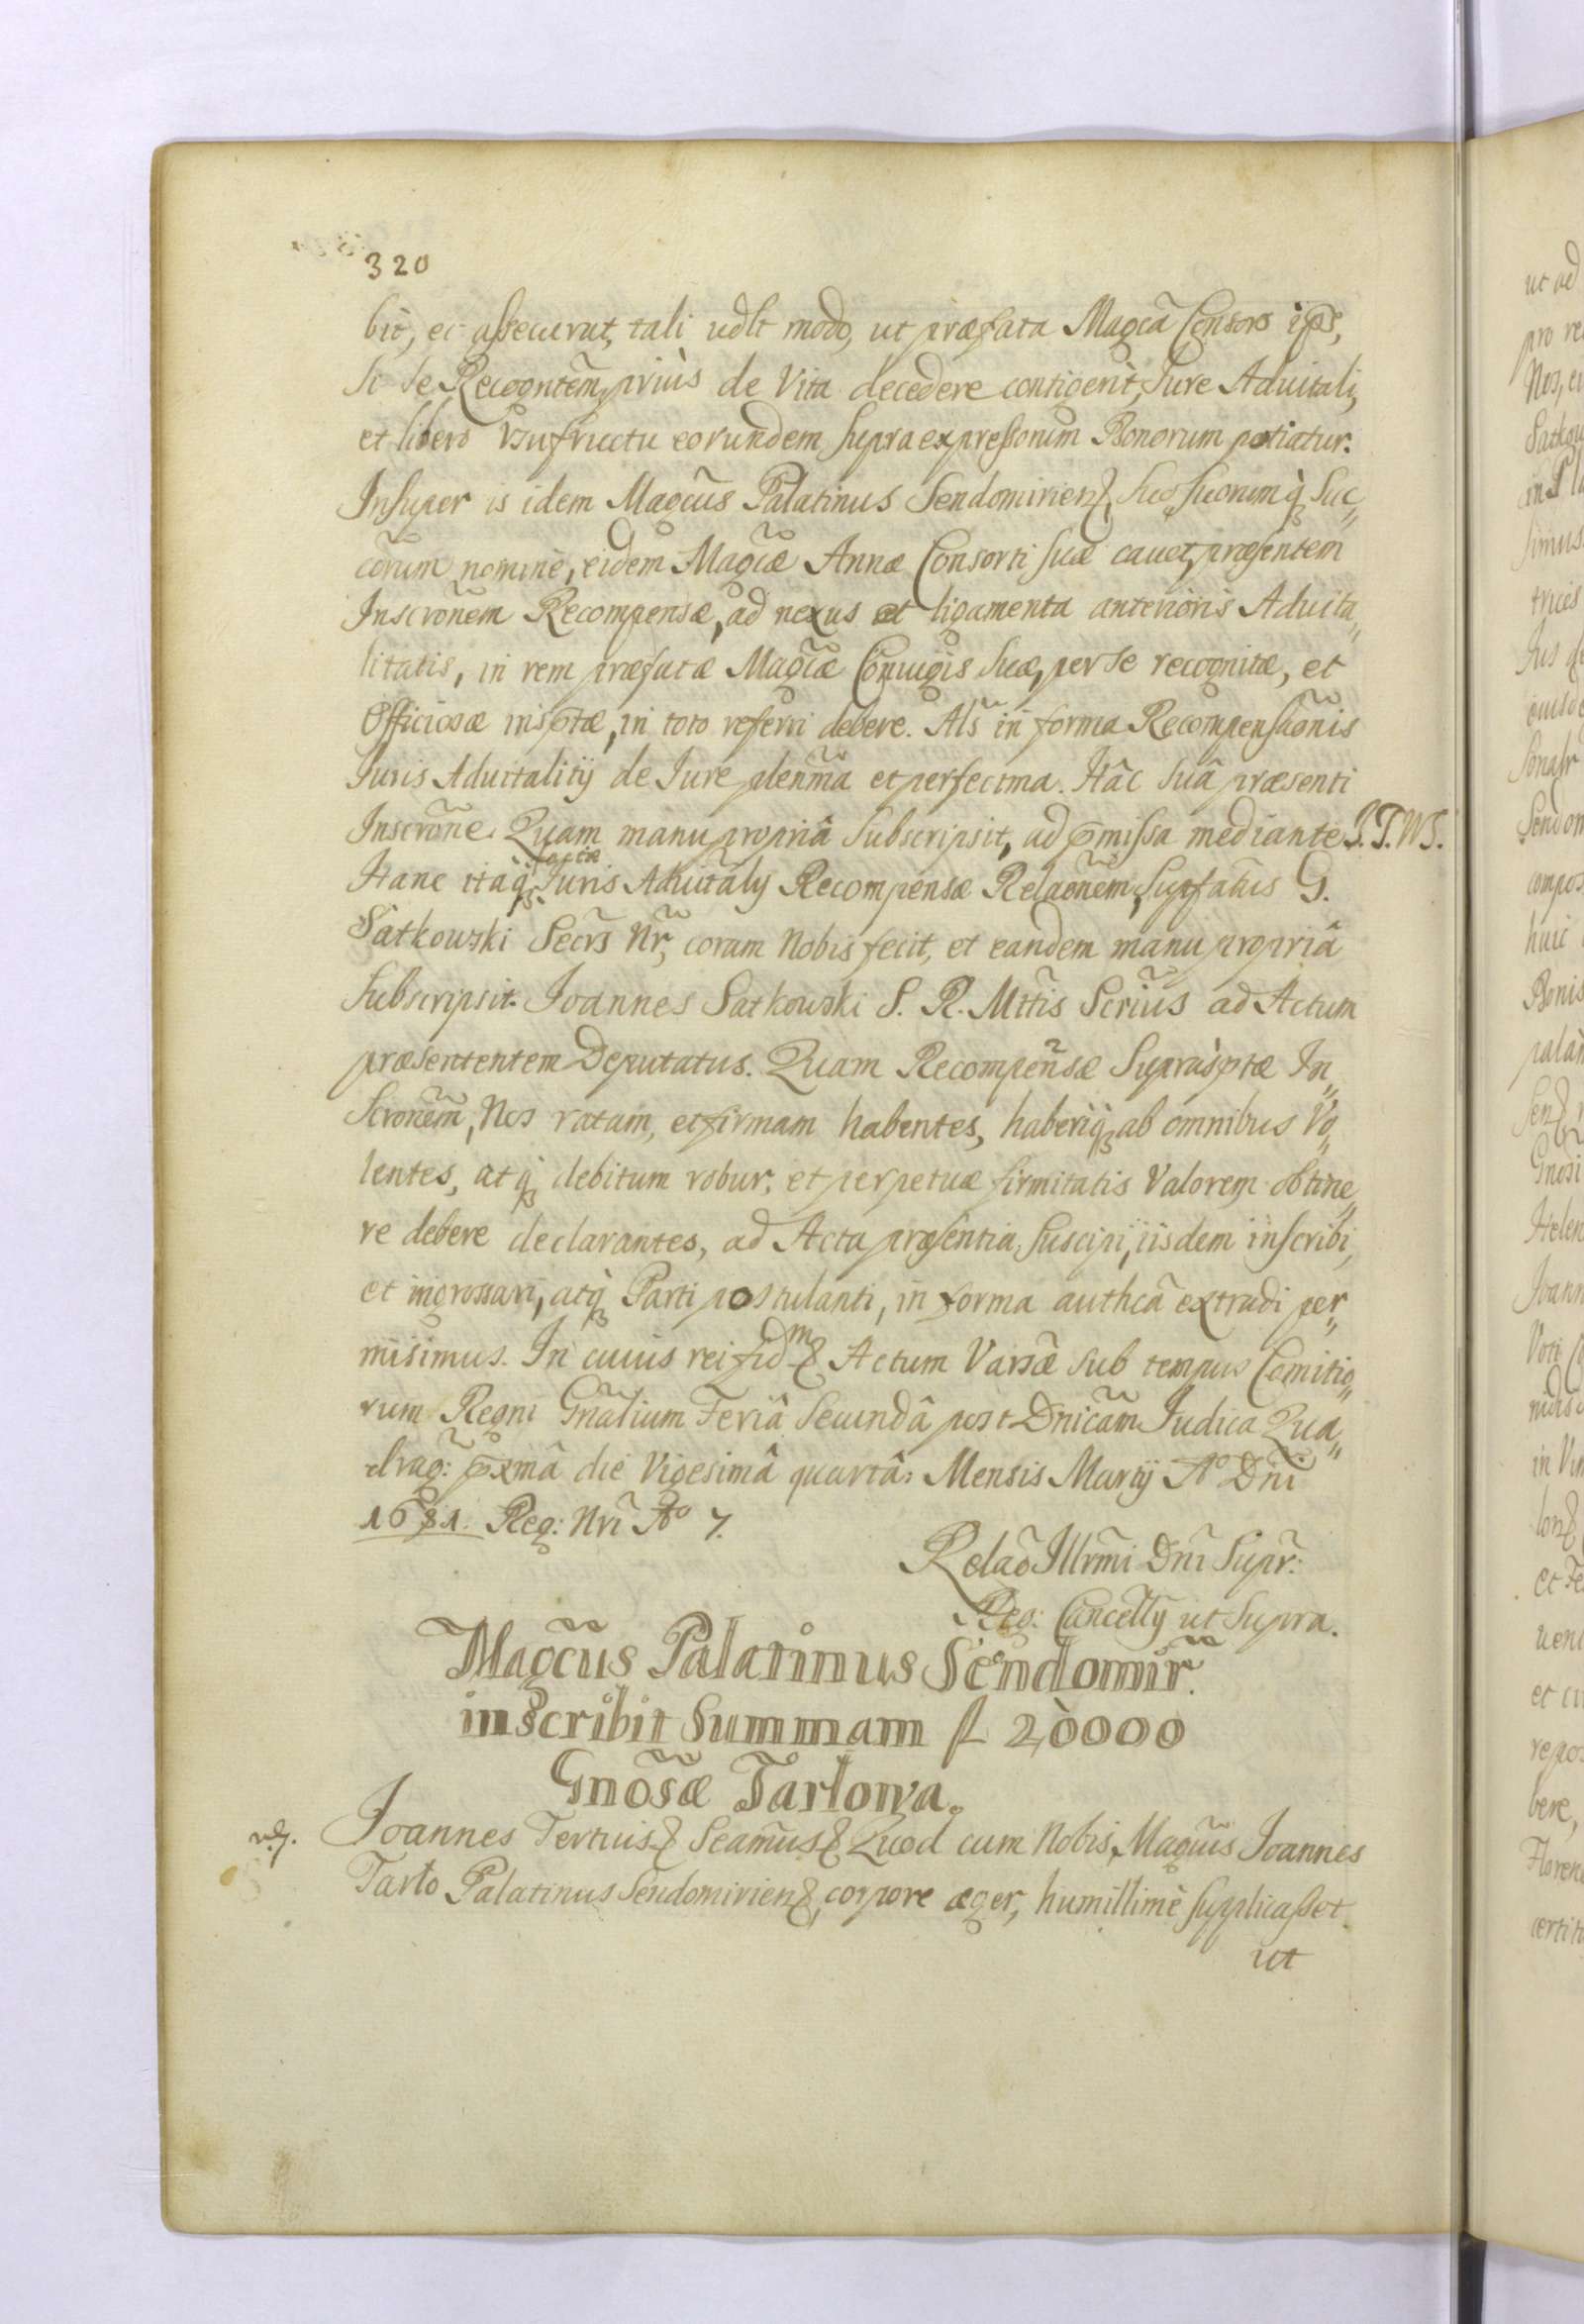 320
bit, et assecurat, tali vdlt modo, ut præfata Magcã Consors ipš,
si se Recogntẽm priùs de Vita decedere contigerit, Iure Aduitali,
et libero Vsufructu eorundem supra expressorum Bonorum potiatur.
Insuper is idem Magcũs Palatinus Sendomirien̨, suo, suorumq̀ Suc„
cõrum nominè, eidem Magcæ̃ Annæ Consorti suæ cauet, præsentem
Inscronẽm Recompensæ, ad nexus et ligamenta anterioris Aduita„
litatis, in rem præfatæ Magcæ̃ Coniugis suæ, per se recognitæ, et
Officiosæ insptæ, in toto referri debere. Als̃ in forma Recompensaõnis
Iuris Aduitalitij de Iure plenm̃a et perfectma. Hâc suâ præsenti
Inscronẽ. Quam manu propriâ subscripsit, ad p̃missa mediante J. T. W S.
Hanc itaq̀ factæ Iuris Aduitãlij Recompensæ Relaonẽm, Supfatũs G.
Satkowski Secrs̃ Nr̃, coram Nobis fecit, et eandem manu propriâ
subscripsit. Ioannes Satkowski S. R. Mttis Scriũs ad Actum
præsententem Deputatus. Quam Recompeñsæ Suprasptæ In„
scronẽm, Nos ratam, et firmam habentes, haberiq̀ ab omnibus Vo„
lentes, atq̀ debitum robur, et perpetuæ firmitatis Valorem obtine„
re debere declarantes, ad Acta præsentia, suscipi, iisdem inscribi,
et ingrossari, atq̀ Parti postulanti, in forma authcã extradi per„
misimus. In cuius rei fidm & Actum Varsæ̃ sub tempus Comitio„
rum Regni Gnãlium Feriâ Secundâ post Dnicãm Iudica Qua„
drag: p̃xmâ die Vigesimâ quartâ: Mensis Martij Aº Dnĩ
1681. Reg: Nrĩ Aº 7.
Relaõ Illrm̃i Dnĩ Supr̃:
Reg: Cancelltj ut supra.
Magcũs Palatinus Sendomir̃.
inscribit Summam fl 20000
Gnõsæ Tarłowa.
Ioannes Tertius & Seamũs & Quod cum Nobis, Magcũs Ioannes
Tarło Palatinus Sendomirien̨, corpore æger, humillimè supplicasset
ut